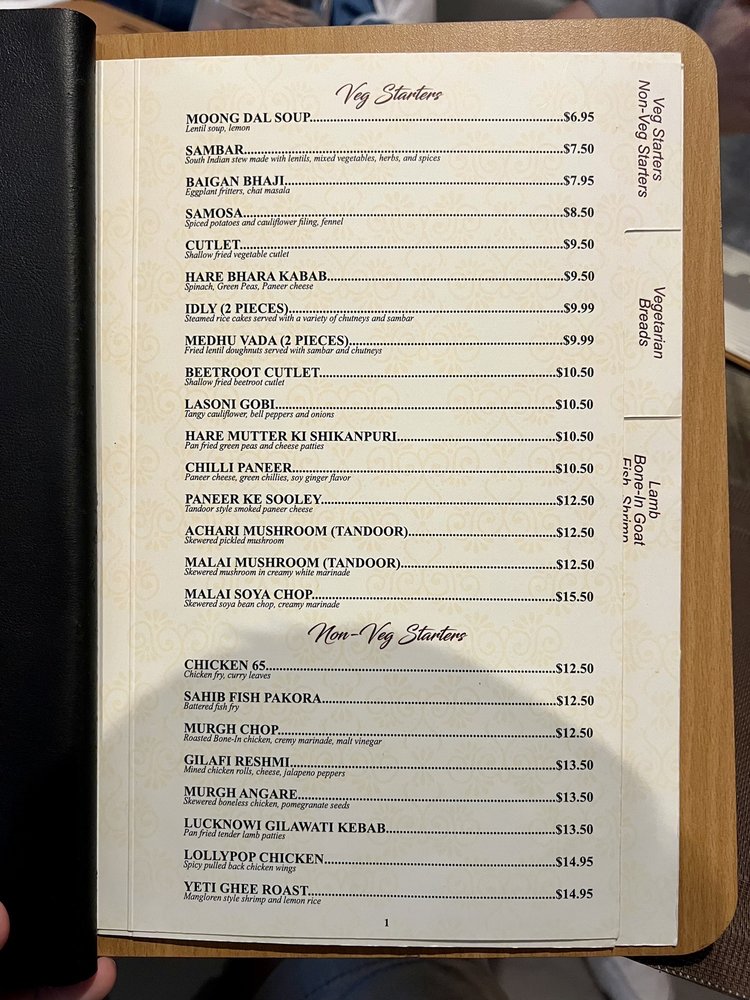 Veg Starters
MOONG DAL SOUP........$6.95
Lentil soup, lemon
SAMBAR........$7.50
South Indian stew made with lentils, mixed vegetables, herbs, and spices
BAIGAN BHAJI........$7.95
Eggplant fritters, chat masala
SAMOSA........$8.50
Spiced potatoes and cauliflower filing, fennel
CUTLET........$9.50
Shallow fried vegetable cutlet
HARE BHARA KABAB........$9.50
Spinach, Green Peas, Paneer cheese
IDLY (2 PIECES)........$9.99
Steamed rice cakes served with a variety of chutneys and sambar
MEDHU VADA (2 PIECES)........$9.99
Fried lentil doughnuts served with sambar and chutneys
BEETROOT CUTLET........$10.50
Shallow fried beetroot cutlet
LASONI GOBI........$10.50
Tangy cauliflower, bell peppers and onions
HARE MUTTER KI SHIKANPURI........$10.50
Pan fried green peas and cheese patties
CHILLI PANEER........$10.50
Paneer cheese, green chillies, soy ginger flavor
PANEER KE SOOLEY........$12.50
Tandoor style smoked paneer cheese
ACHARI MUSHROOM (TANDOOR)........$12.50
Skewered pickled mushroom
MALAI MUSHROOM (TANDOOR)........$12.50
Skewered mushroom in creamy white marinade
MALAI SOYA CHOP........$15.50
Skewered soya bean chop, creamy marinade
Non-Veg Starters
CHICKEN 65........$12.50
Chicken fry, curry leaves
SAHIB FISH PAKORA........$12.50
Battered fish fry
MURGH CHOP........$12.50
Roasted Bone-In chicken, cremy marinade, malt vinegar
GILAFI RESHMI........$13.50
Mined chicken rolls, cheese, jalapeno peppers
MURGH ANGARE........$13.50
Skewered boneless chicken, pomegranate seeds
LUCKNOWI GILAWATI KEBAB........$13.50
Pan fried tender lamb patties
LOLLYPOP CHICKEN........$14.95
Spicy pulled back chicken wings
YETI GHEE ROAST........$14.95
Mangloren style shrimp and lemon rice
1
Veg Starters
Non-Veg Starters
Vegetarian
Breads
Lamb
Bone-In Goat
Fish, Shrimp